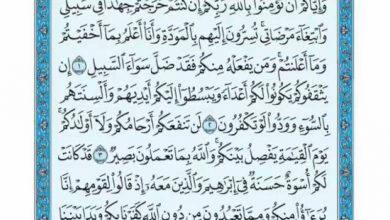 وَإِيَّاكُمْ أَن تُؤْمِنُوا۟ بِٱللَّهِ رَبِّكُمْ إِن كُنتُمْ خَرَجْتُمْ جِهَٰدًا فِى سَبِيلِى
وَٱبْتِغَآءَ مَرْضَاتِى تُسِرُّونَ إِلَيْهِم بِٱلْمَوَدَّةِ وَأَنَا۠ أَعْلَمُ بِمَآ أَخْفَيْتُمْ
وَمَآ أَعْلَنتُمْ وَمَن يَفْعَلْهُ مِنكُمْ فَقَدْ ضَلَّ سَوَآءَ ٱلسَّبِيلِ ١ إِن
يَثْقَفُوكُمْ يَكُونُوا۟ لَكُمْ أَعْدَآءً وَيَبْسُطُوٓا۟ إِلَيْكُمْ أَيْدِيَهُمْ وَأَلْسِنَتَهُم
بِٱلسُّوٓءِ وَوَدُّوا۟ لَوْ تَكْفُرُونَ ٢ لَن تَنفَعَكُمْ أَرْحَامُكُمْ وَلَآ أَوْلَٰدُكُمْ
يَوْمَ ٱلْقِيَٰمَةِ يَفْصِلُ بَيْنَكُمْ وَٱللَّهُ بِمَا تَعْمَلُونَ بَصِيرٌ ٣ قَدْ كَانَتْ
لَكُمْ أُسْوَةٌ حَسَنَةٌ فِىٓ إِبْرَٰهِيمَ وَٱلَّذِينَ مَعَهُۥٓ إِذْ قَالُوا۟ لِقَوْمِهِمْ إِنَّا
بُرَءَٰٓؤُا۟ مِنكُمْ وَمِمَّا تَعْبُدُونَ مِن دُونِ ٱللَّهِ كَفَرْنَا بِكُمْ وَبَدَا بَيْنَنَا